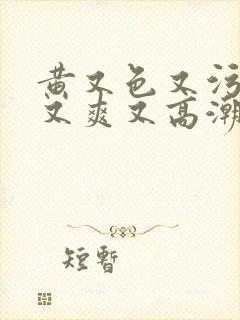 黄又色又污
又爽又高潮
短暂